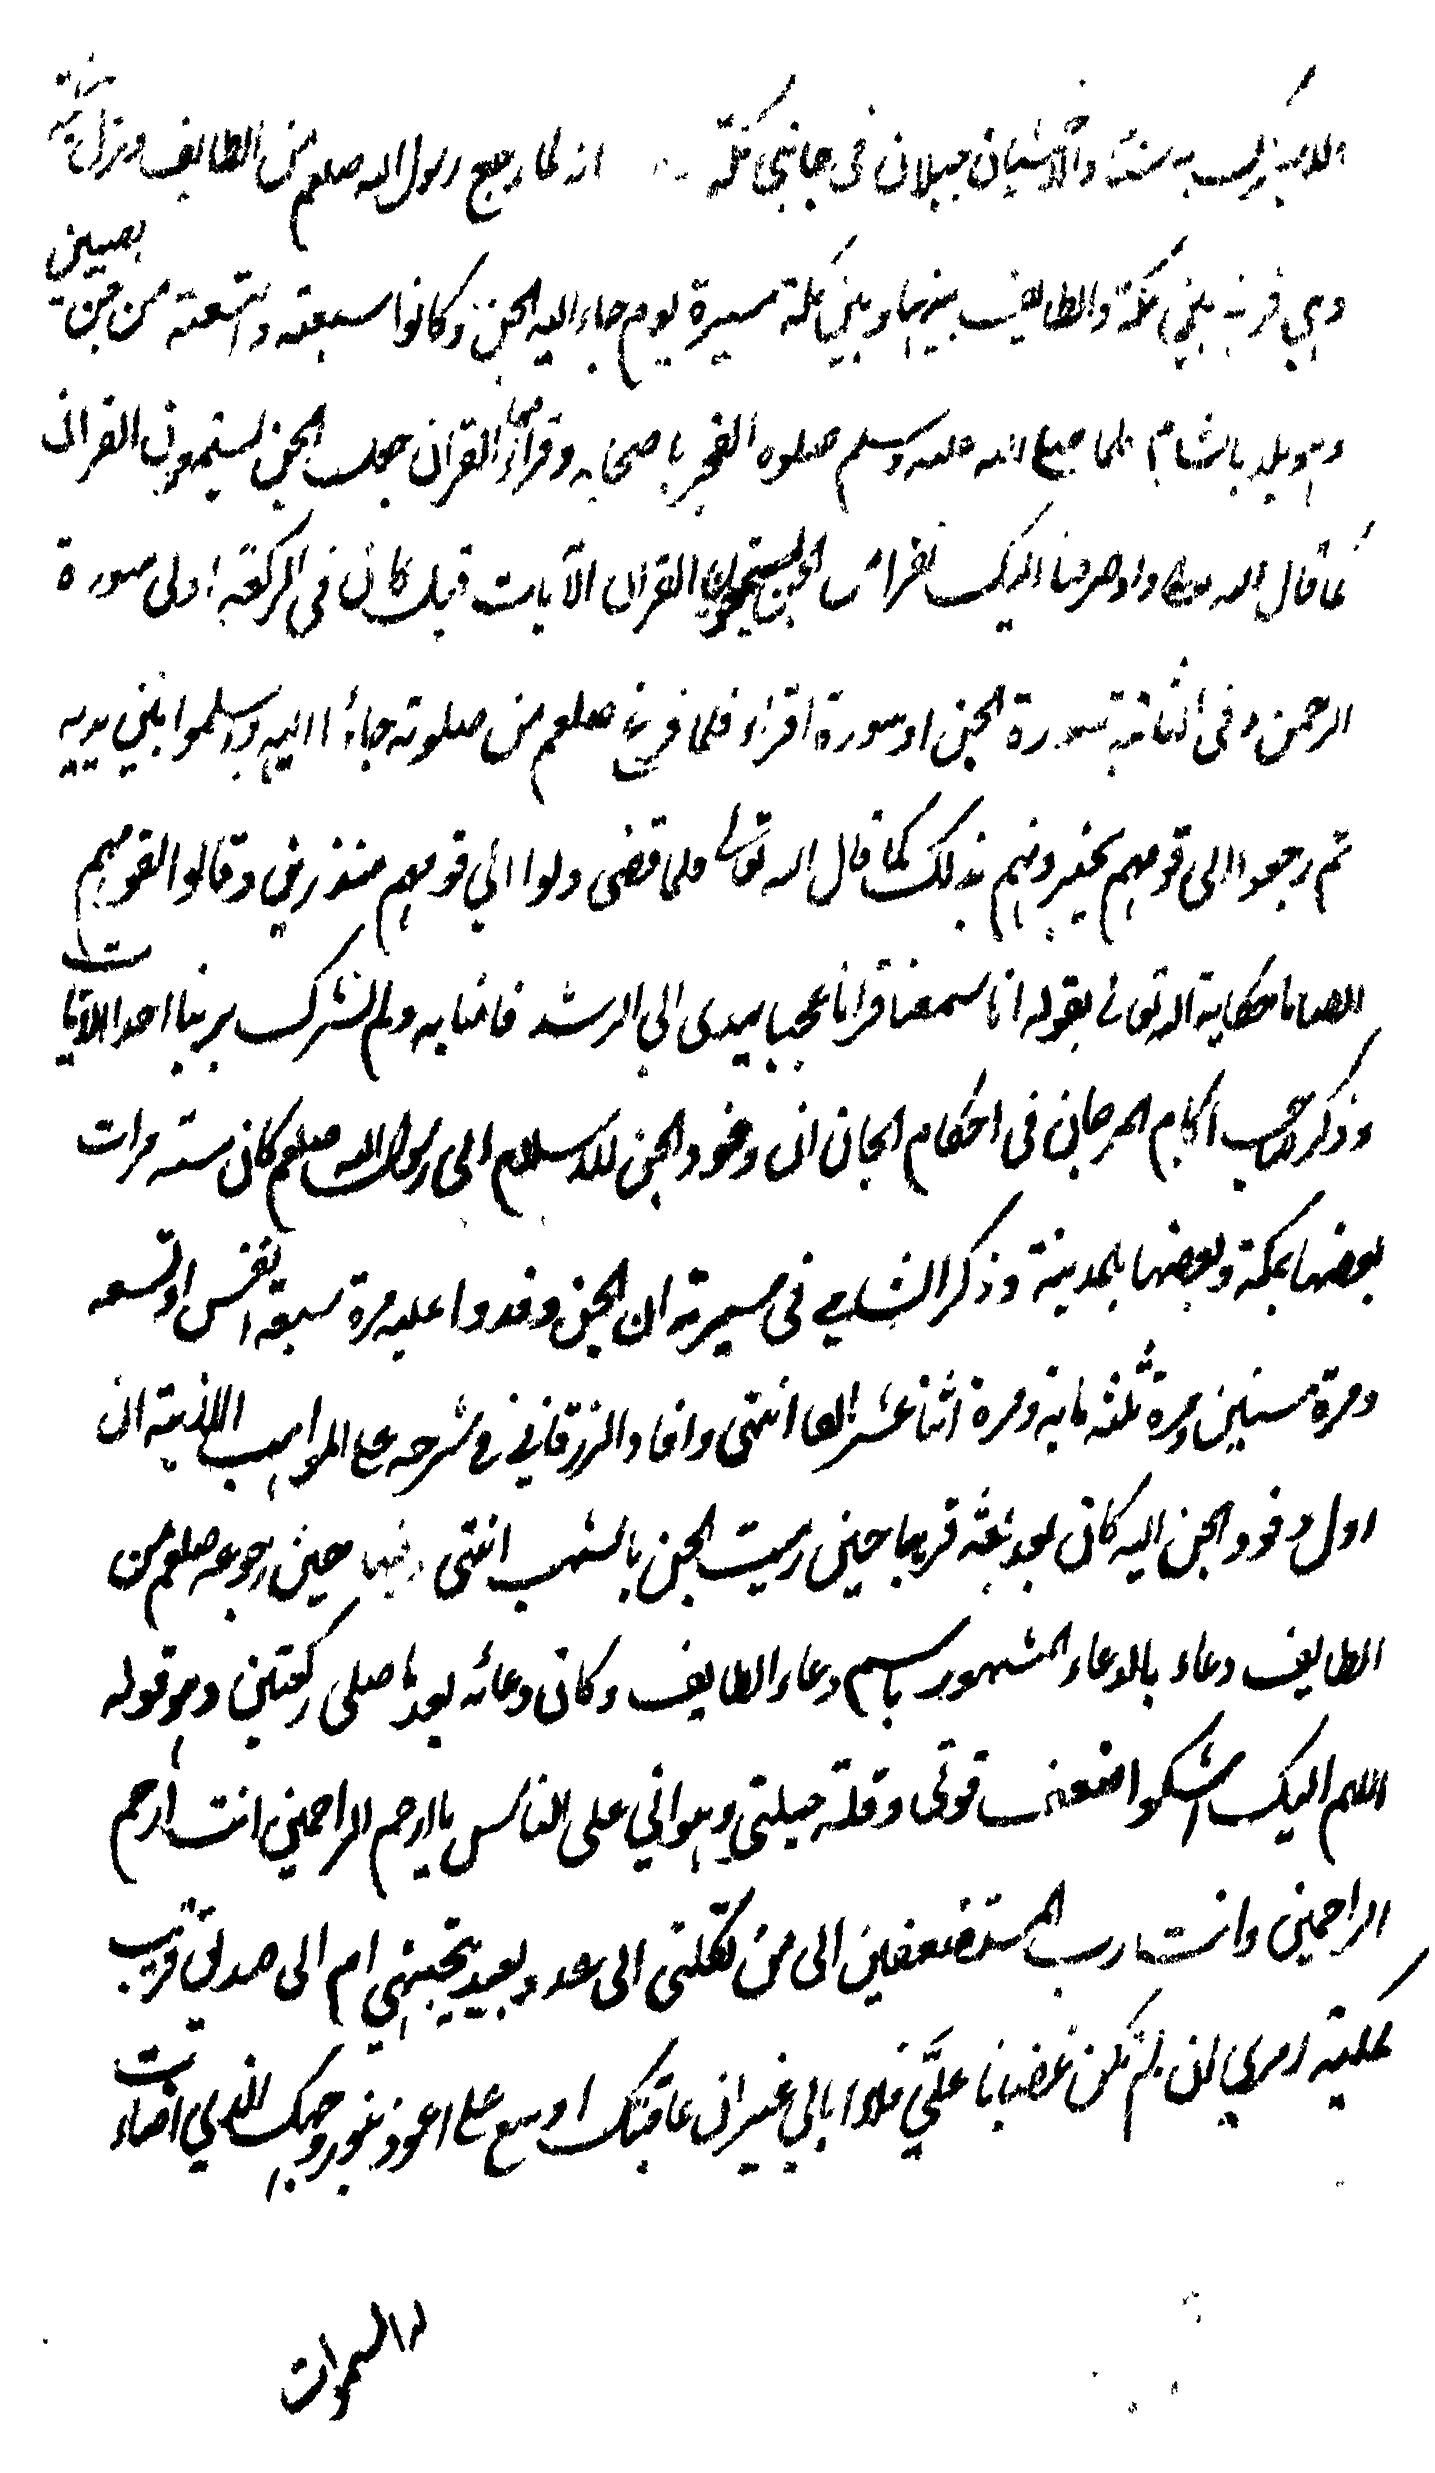 ولا يشرك به شيئا والاخشبان جبلان في جانبي مكة انه لما رجع رسول الله صلعم من الطايف ونزل نخلة
وهي قرية بين مكة والطايف بينها وبين مكة مسيرة يوم جاء اليه الجن وكانوا سبعة او تسعة من جن نصيبين
وهو بلد بالشام فلما صلى الله عليه وسلم صلوة الفجر باصحابه وقرأ فيها القران جعلت الجن يستمعون القران
كما قال الله تعالى واذ صرفنا اليك نفرا من الجن يستمعون القران الآيات قيل كان في الركعة اولى سورة
الرحمن وفي الثانية سورة الجن او سورة اقراء فلما فرغ صلعم من صلوته جاءُا اليه واسلموا بين يديه
ثم رجعوا الى قومهم يخبرونهم بذلك كما قال الله تعالى فلما قضى ولوا الي قومهم منذرين وقالوا لقومهم
ايضا ما حكاية الله تعالى بقوله انا سمعنا قرانا عجبا يهدى الي الرشد فامنا به ولم نشرك بربنا احدا الآيات
وذكر صاحب آكام المرجان في احكام الجان ان وفود الجن للاسلام الى رسول الله صلعم كان ستة مرات
بعضها بمكة وبعضها بالمدينة وذكر الشامي في سيرته ان الجن وفدوا عليه مرة سبعة انفس او تسعه
ومرة ستين ومرة ثلثمائة ومرة اثنا عشر الفا انتهى وافاد الزرقاني في شرحه على المواهب اللدنية ان
اول وفود الجن اليه كان بعد بعثه قريبا حين رميت الجن بالشهب انتهى وفيها حين رجوعه صلعم من
الطايف دعاء بالدعاء المشهور باسم دعاء الطايف وكان دعائه بعد ما صلى ركعتين وهو قوله
اللهم اليك اشكوا ضعف قوتى وقلة حيلتي وهواني على الناس يا ارحم الراحمين انت ارحم
الراحمين وانت رب المستضعفين الى من تكلنى الى عدو بعيد يتجهمني ام الى صديق قريب
ملكته امري ان لم تكن غضبانا عليَّ فلا ابالي غير ان عافيتك اوسع علي اعوذ بنور وجهك الذي اضاءت
له السموات